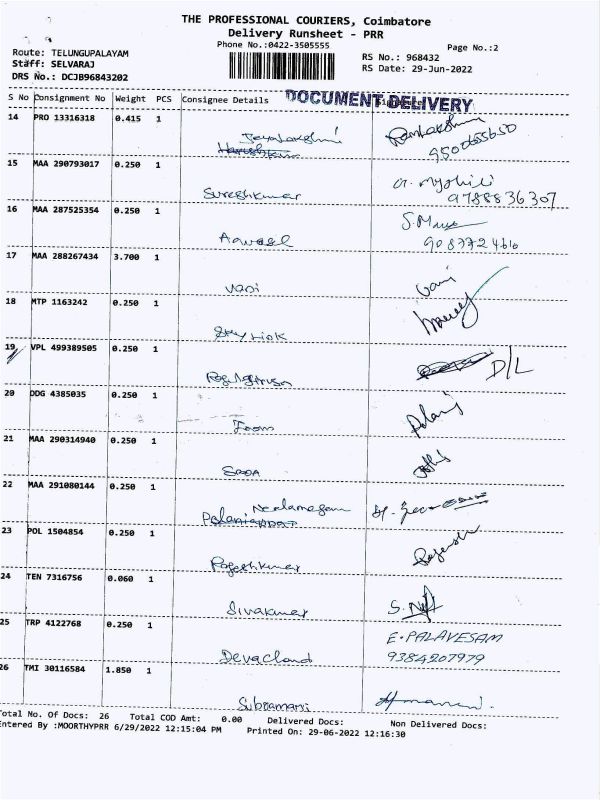 THE PROFESSIONAL COURIERS, Coimbatore
Delivery Runsheet - PRR
Phone No.:0422-3505555
Page No.:2
Route: TELUNGUPALAYAM
Staff: SELVARAJ
DRS No.: DCJB96843202
RS No.: 968432
RS Date: 29-Jun-2022
S No Consignment No Weight PCS Consignee Details
DOCUMENT DELIVERY
14 PRO 13316318 0.415 1
Jayalakshmi
15 MAA 290793017 0.250 1
Sureshkumar
9788836307
16 MAA 287525354 0.250 1
17 MAA 288267434 3.700 1
Vani
18 MTP 1163242 0.250 1
19 VPL 499389505 0.250 1
D/L
20 DDG 4385035 0.250 1
21 MAA 290314940 0.250 1
22 MAA 291080144 0.250 1
23 POL 1504854 0.250 1
Rajeshkumar
24 TEN 7316756 0.060 1
Sivakumar
25 TRP 4122768 0.250 1
Devacland
E.PALAVESAM
9384207979
26 TMI 30116584 1.850 1
Subramani
Total No. Of Docs: 26 Total COD Amt: 0.00 Delivered Docs: Non Delivered Docs:
Entered By :MOORTHYPRR 6/29/2022 12:15:04 PM Printed On: 29-06-2022 12:16:30